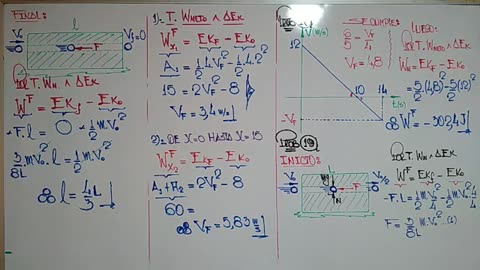 FINAL:
l
V₀
V_f=0
F
Del T. Wn ∧ ΔEk
W^F = EK_F - EK₀
-F.l = 0 - 1/2 mV₀²
3/8L mV₀².l = 1/2 mV₀²
∞ l = 4L/3
1)- T. Wneto ∧ ΔEk
W^F_x₁ = EK_F - EK₀
A₁ = 1/2 4V_F² - 1/2 4.2²
15 = 2V_F² - 8
V_F = 3,4 m/s
2)- DE X=0 HASTA X=15
W^F_x₂ = EK_F - EK₀
A₁+A₂ = 2V_F² - 8
60 =
∞ V_F = 5,83 m/s
V(m/s)
12
10
14
t(s)
-V_F
SE CUMPLE:
12/10 = V_F/4
V_F = 4,8
LUEGO:
Del T. Wn ∧ ΔEk
W^F = EK_F - EK₀
= 5/2 (4,8)² - 5/2 (12)²
∞ W^F = -302,4 J
PROB 19
INICIO:
V₀
V₀/2
F
N
L
Del T. Wn ∧ ΔEk
W^F = EK_F - EK₀
-F.L = 1/2 m V₀²/4 - 1/2 mV₀² . 4/4
F = 3/8L mV₀² ...(1)